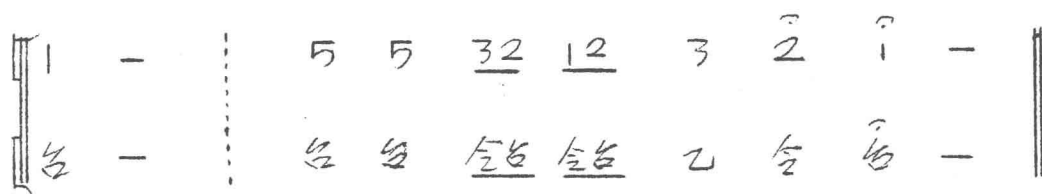 1 — 5 5 32 12 3 2 1 —
台 — 台 台 令台 令台 乙 令 台 —